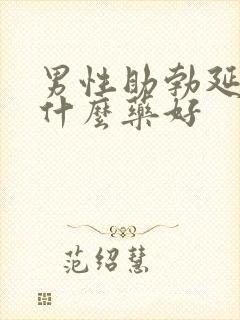 男性助勃延
什麼藥好
范绍慧